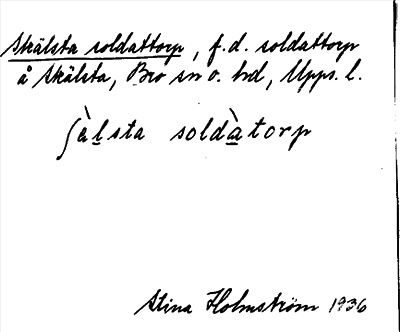 Skälsta soldattorp, f.d. soldattorp
å Skälsta, Bro sn o. hd, Upps. l.
ʃὰl̲sta soldὰ̲torp
Stina Holmström 1936